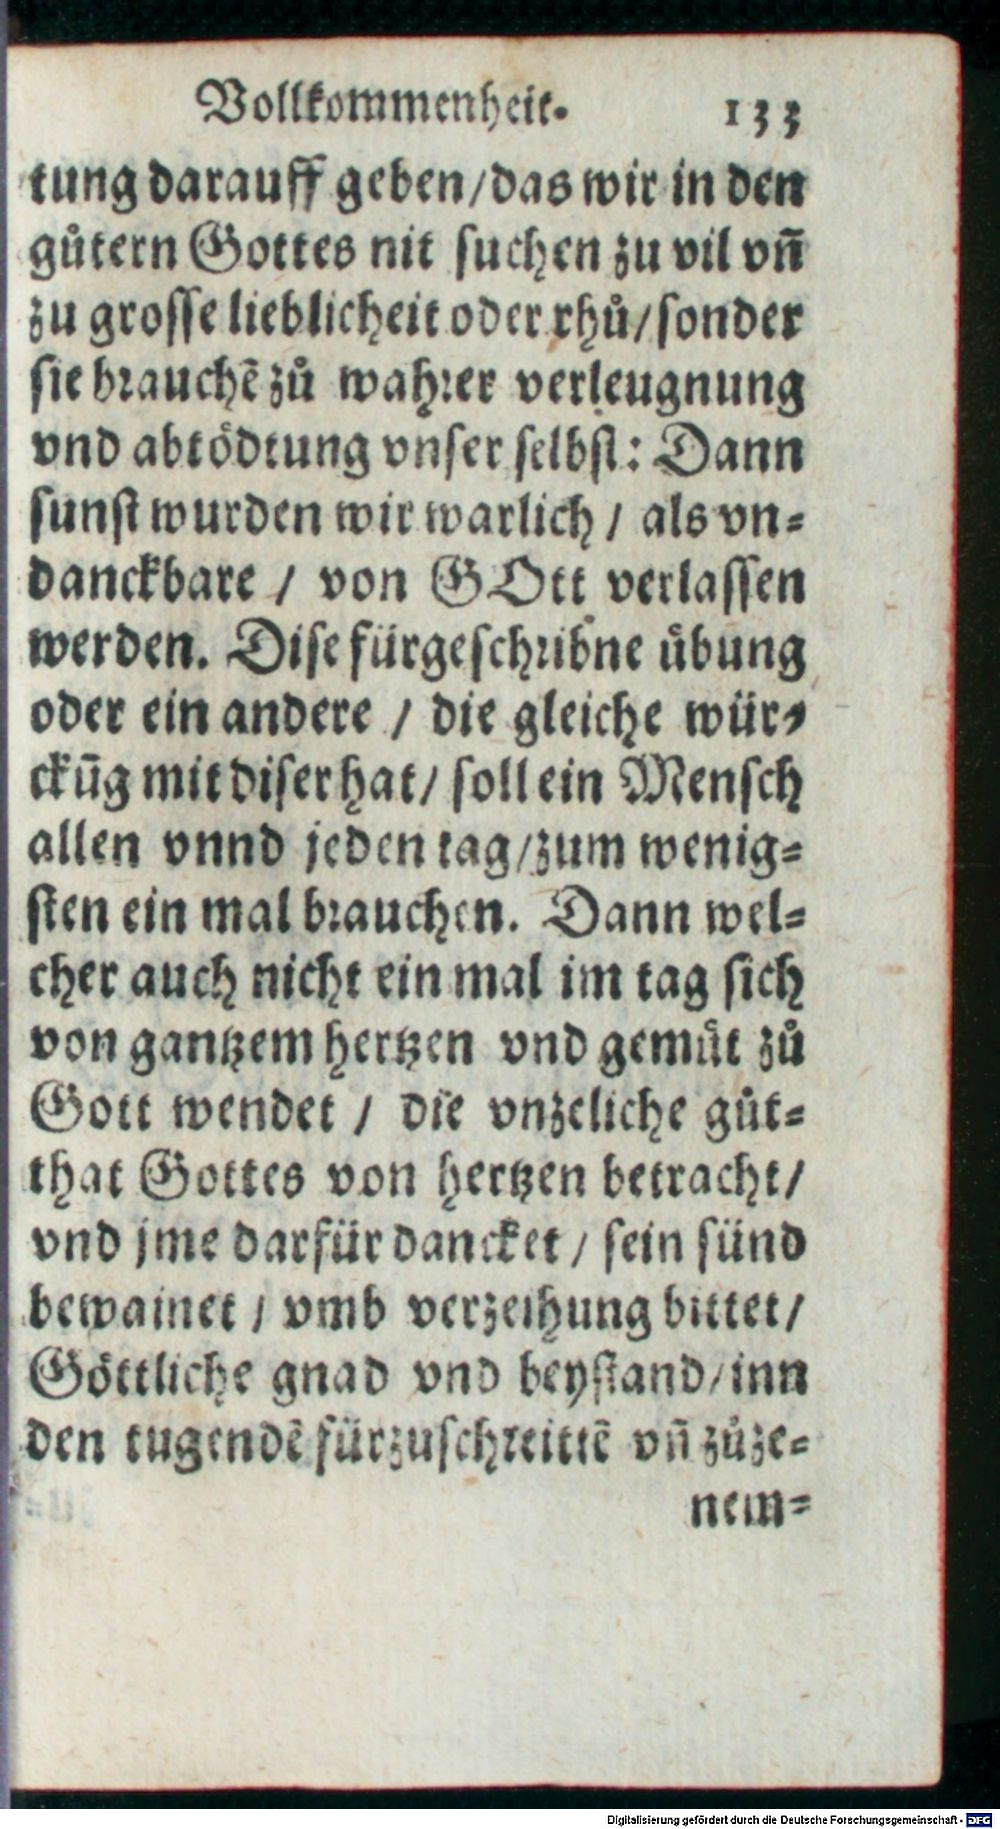 Vollkommenheit. 133
tung darauff geben/das wir in den
guͤtern Gottes nit suchen zu vil vñ
zu grosse lieblicheit oder rhuͦ/sonder
sie brauchẽ zuͦ wahrer verleugnung
vnd abtödtung vnser selbst: Dann
sunst wurden wir warlich / als vn-
danckbare / von GOtt verlassen
werden. Dise fürgeschribne uͤbung
oder ein andere / die gleiche wür-
ckũg mit diser hat/ soll ein Mensch
allen vnnd jeden tag/zum wenig-
sten ein mal brauchen. Dann wel-
cher auch nicht ein mal im tag sich
von gantzem hertzen vnd gemuͤt zuͦ
Gott wendet / die vnzeliche guͦt-
that Gottes von hertzen betracht/
vnd jme darfür dancket / sein sünd
bewainet / vmb verzeihung bittet/
Göttliche gnad vnd beystand/inn
den tugendẽ fürzuschreittẽ vñ zuͦze-
nem-
Digitalisierung gefördert durch die Deutsche Forschungsgemeinschaft - DFG